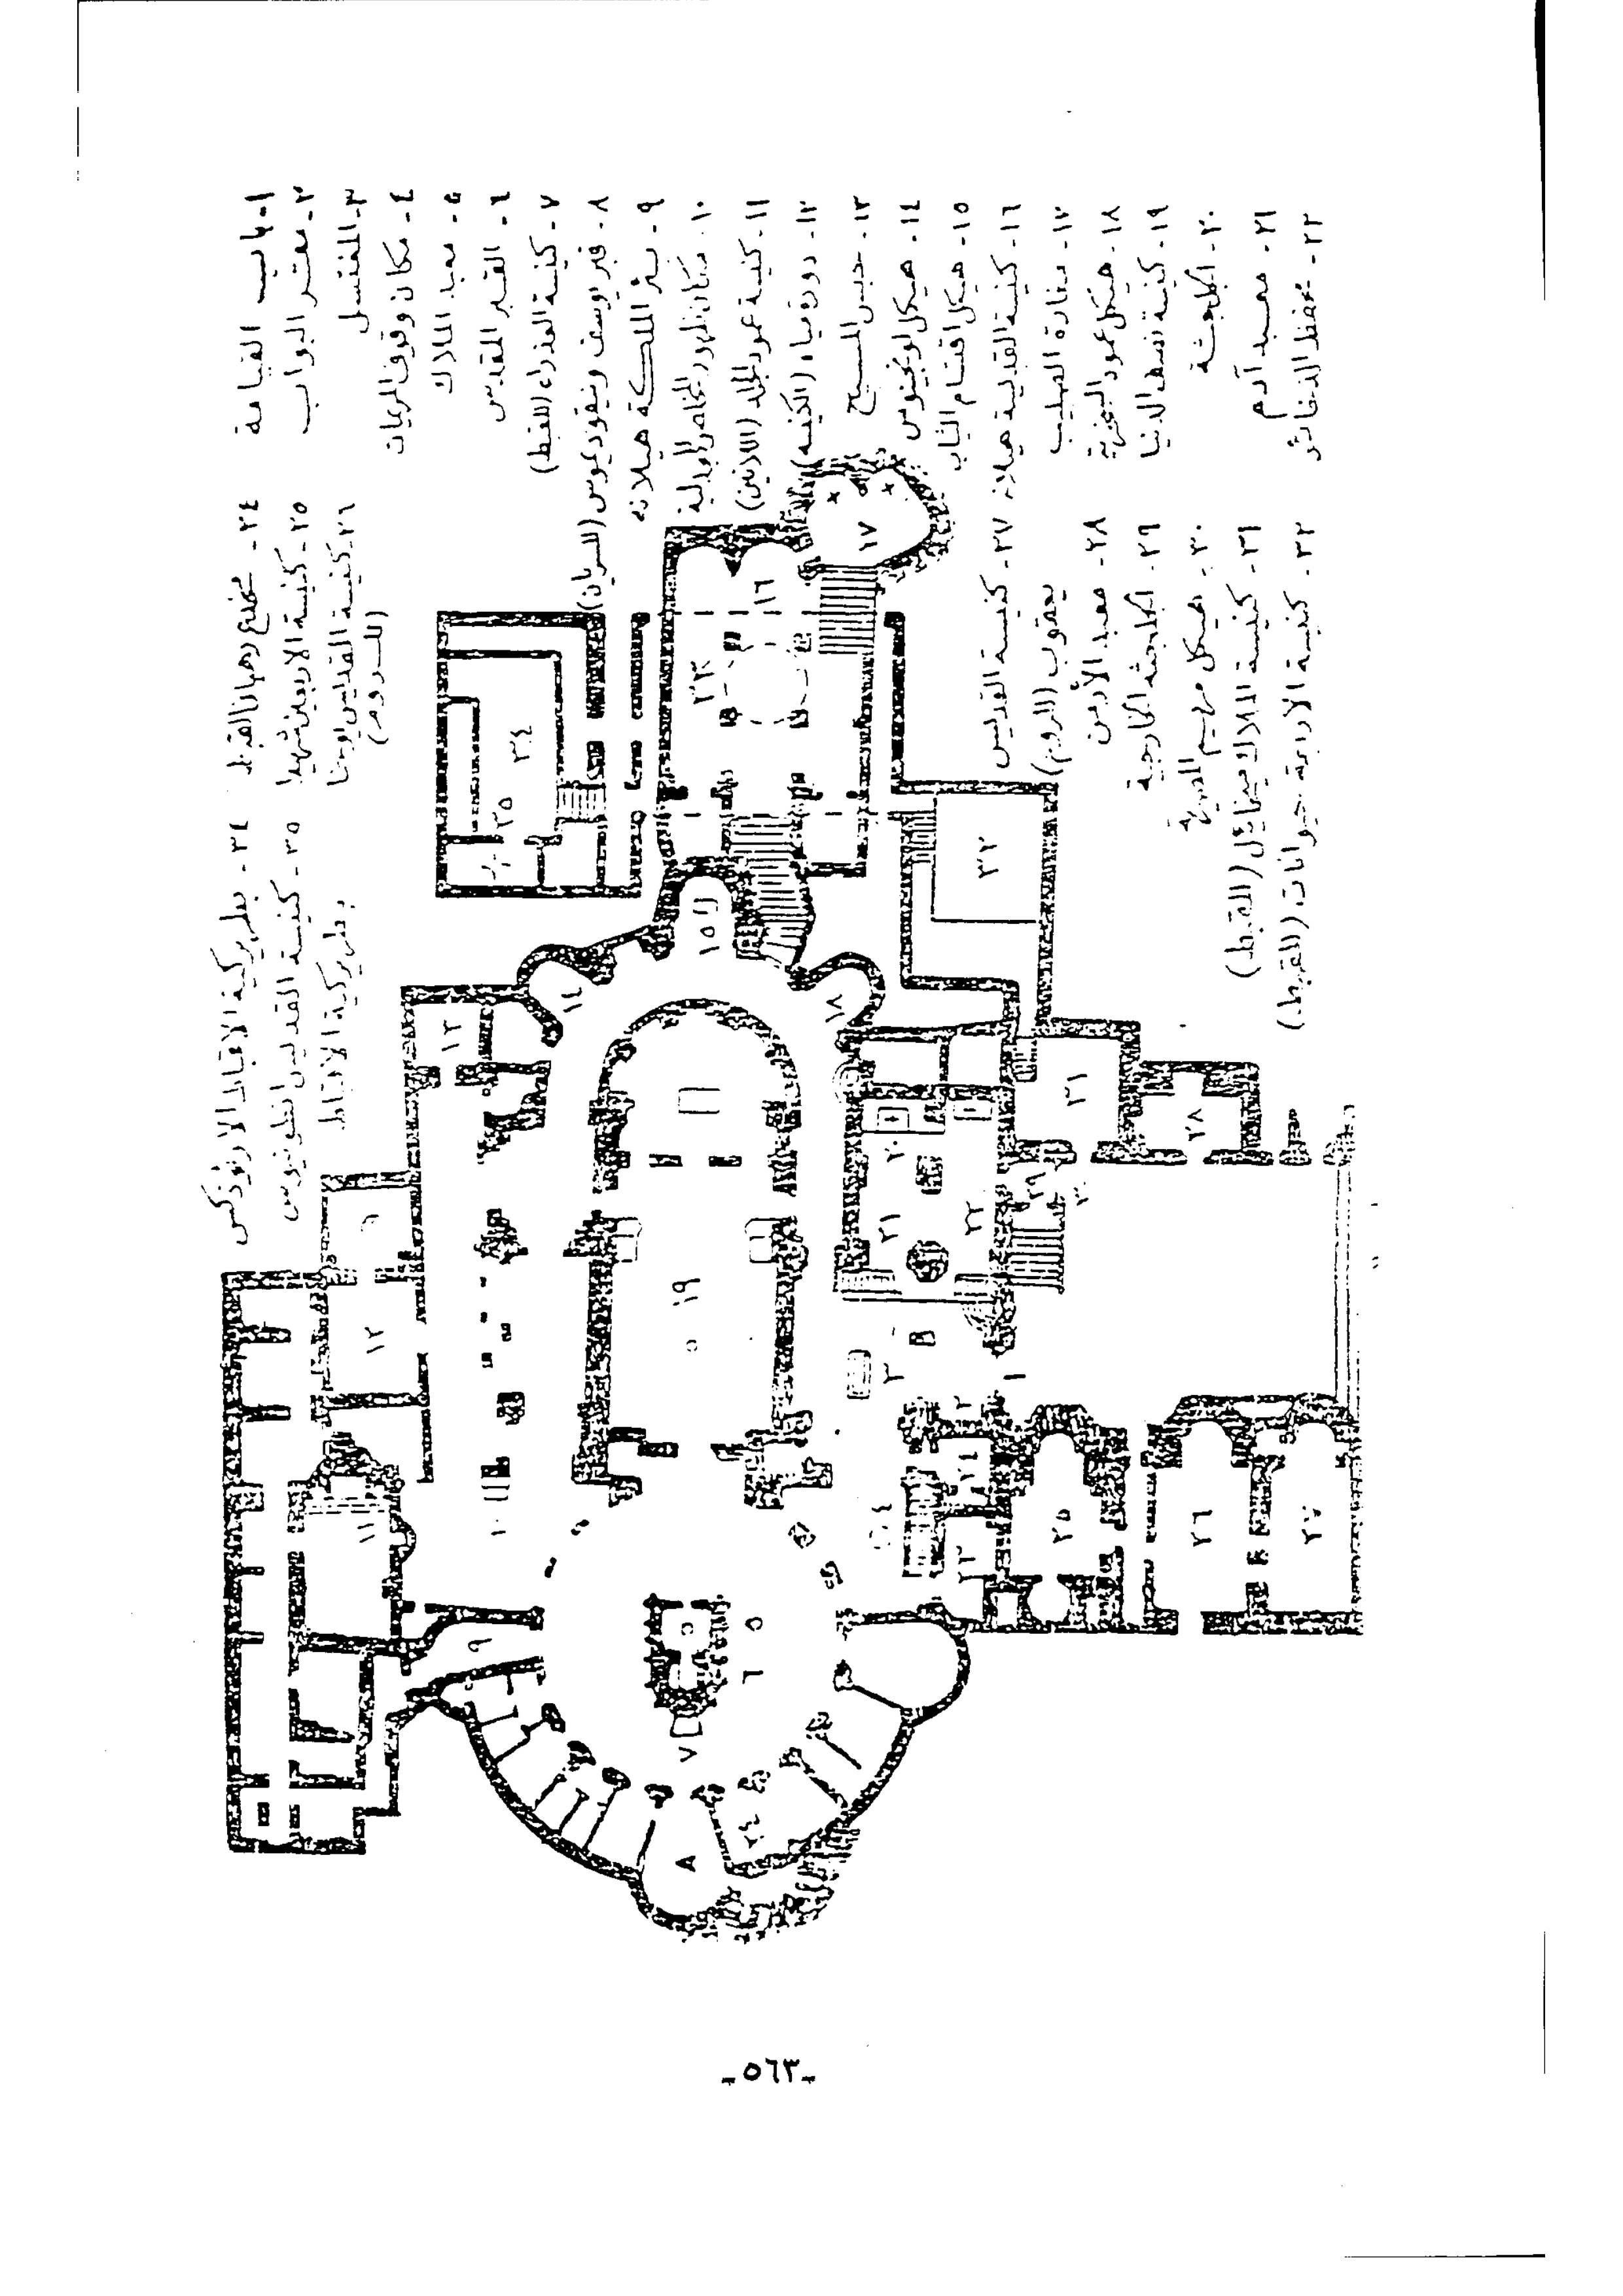 ١- باب القيامة
٢- مقر البواب
٣- المغتسل
٤- مكان وقوف المريمات
٥- معبد الملاك
٦- القبر المقدس
٧- كنيسة العذراء (للقبط)
٨- قبر يوسف ونيقوديموس (للسريان)
٩- بئر الملكة هيلانه
١٠- مكان ظهور المخلص للمجدلية
١١- كنيسة عمود الجلد (اللاتين)
١٢- دورة مياه (الكنيسه)
١٣- حبس المسيح
١٤- هيكل لونجينوس
١٥- هيكل اقتسام الثياب
١٦- كنيسة القديسة هيلانه
١٧- مغارة الصليب
١٨- هيكل عمود السخرية
١٩- كنيسة نصف الدنيا
٢٠- الجلجثة
٢١- معبد آدم
٢٢- محفظ الذخائر
٢٤- مخدع رهبان القبط
٢٥- كنيسة الاربعين شهيدا
٢٦- كنيسة القديس يوحنا
(للروم)
٢٧- كنيسة القديس
يعقوب (للروم)
٢٨- معبد الأرمن
٢٩- الجلجثه الخارجية
٣٠- هيكل مريم المصرية
٣١- كنيسة الملاك ميخائيل (القبط)
٣٢- كنيسة الاربعة حيوانات (القبط)
٣٤- بطريركية الاقباط الارثوذكس
٣٥- كنيسة القديس انطونيوس
بطريركية الاقباط
١
٢
٣
٤
٥
٦
٧
٨
٩
١٠
١١
١٢
١٣
١٤
١٥
١٦
١٧
١٨
١٩
٢٠
٢١
٢٢
٢٣
٢٤
٢٥
٢٦
٢٧
٢٨
٢٩
٣٠
٣١
٣٢
٣٣
٣٤
٣٥
-٥٦٣-